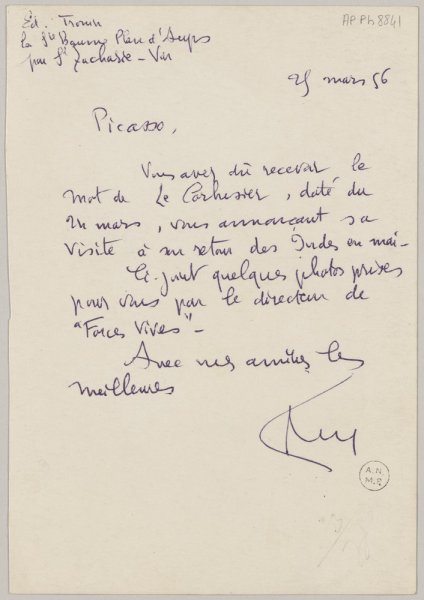 AP Ph 8841
Éd. Trouin
la Ste Baume Plan d'Aups
par St Zacharie - Var
25 mars 56
Picasso,
Vous avez dû recevoir le
mot de Le Corbusier, daté du
24 mars, vous annonçant sa
visite à son retour des Indes en mai -
Ci-joint quelques photos prises
pour vous par le directeur de
"Forces Vives" -
Avec mes amitiés les
meilleures
A.N.
M.P.